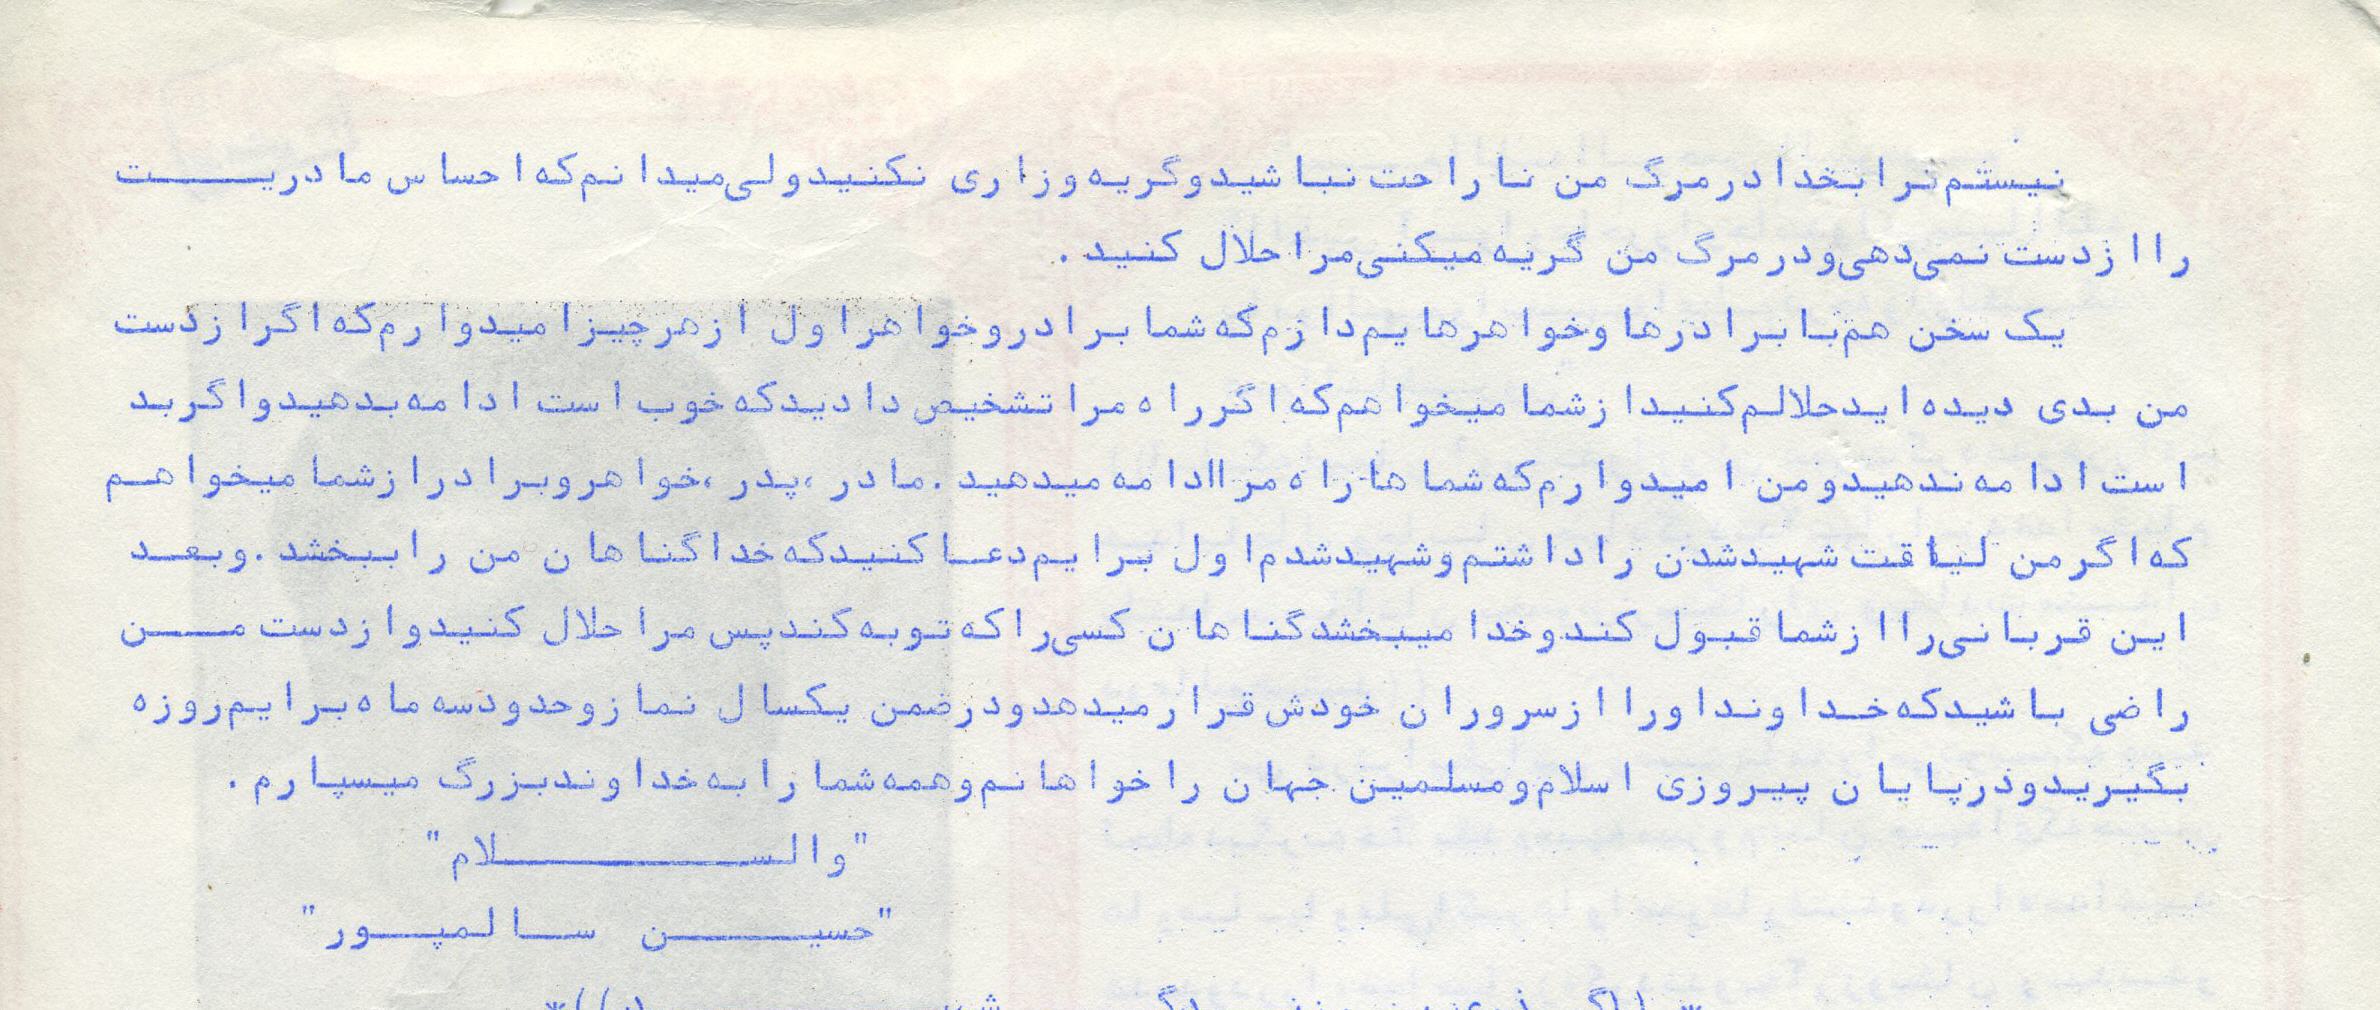 نیستم ترا بخدا در مرگ من ناراحت نباشید و گریه و زاری نکنید ولی میدانم که احساس مادریت
را از دست نمی‌دهی و در مرگ من گریه میکنی مرا حلال کنید .
یک سخن هم با برادرها و خواهرهایم دارم که شما برادر و خواهر اول از هر چیز امیدوارم که اگر از دست
من بدی دیده اید حلالم کنید از شما میخواهم که اگر راه مرا تشخیص دادید که خوب است ادامه بدهید و اگر بد
است ادامه ندهید و من امیدوارم که شماها راه مرا ادامه میدهید . مادر ، پدر ، خواهر و برادر از شما میخواهم
که اگر من لیاقت شهید شدن را داشتم و شهید شدم اول برایم دعا کنید که خدا گناهان من را ببخشد . و بعد
این قربانی را از شما قبول کند و خدا میبخشد گناهان کسی را که توبه کند پس مرا حلال کنید و از دست من
راضی باشید که خداوند او را از سروران خودش قرار میدهد و در ضمن یکسال نماز و حدود سه ماه برایم روزه
بگیرید و در پایان پیروزی اسلام و مسلمین جهان را خواهانم و همه شما را به خداوند بزرگ میسپارم .
"والسلام"
"حسین سالمپور"